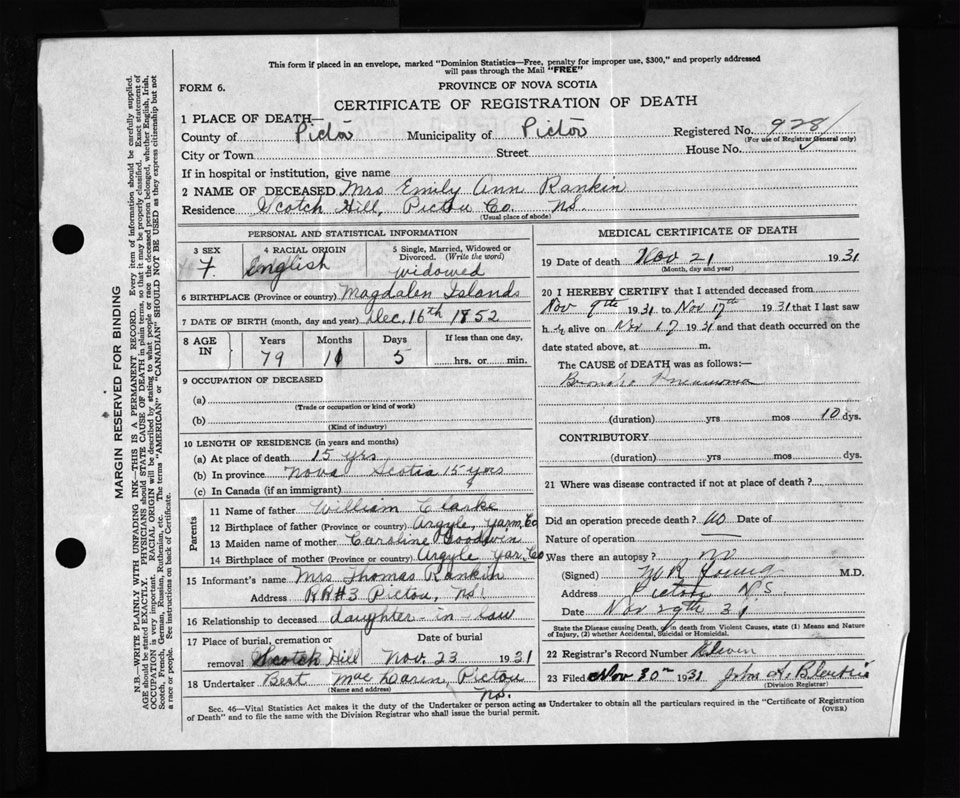 This form if placed in an envelope, marked "Dominion Statistics—Free, penalty for improper use, $300," and properly addressed
will pass through the Mail "FREE"
FORM 6.
PROVINCE OF NOVA SCOTIA
CERTIFICATE OF REGISTRATION OF DEATH
1 PLACE OF DEATH—
County of Pictou Municipality of Pictou Registered No. 928
(For use of Registrar General only)
City or Town Street House No.
If in hospital or institution, give name
2 NAME OF DECEASED Mrs Emily Ann Rankin
Residence Scotch Hill, Pictou Co. NS
(Usual place of abode)
PERSONAL AND STATISTICAL INFORMATION
3 SEX 4 RACIAL ORIGIN 5 Single, Married, Widowed or Divorced. (Write the word)
F. English widowed
6 BIRTHPLACE (Province or country) Magdalen Islands
7 DATE OF BIRTH (month, day and year) Dec. 16th 1852
8 AGE IN Years Months Days If less than one day,
79 11 5 hrs. or min.
9 OCCUPATION OF DECEASED
(a)
(Trade or occupation or kind of work)
(b)
(Kind of industry)
10 LENGTH OF RESIDENCE (in years and months)
(a) At place of death 15 yrs
(b) In province Nova Scotia 15 yrs
(c) In Canada (if an immigrant)
Parents
11 Name of father William Clarke
12 Birthplace of father (Province or country) Argyle, Yarm. Co
13 Maiden name of mother Caroline Goodwin
14 Birthplace of mother (Province or country) Argyle Yar. Co
15 Informant's name Mrs Thomas Rankin
Address RR#3 Pictou, NS
16 Relationship to deceased daughter-in-law
17 Place of burial, cremation or removal Date of burial
Scotch Hill Nov. 23 1931
18 Undertaker Best Pictou
(Name and address) NS.
MEDICAL CERTIFICATE OF DEATH
19 Date of death Nov 21 1931
(Month, day and year)
20 I HEREBY CERTIFY that I attended deceased from
Nov 9th 1931 to Nov 17th 1931 that I last saw
h er alive on Nov 17 1931 and that death occurred on the
date stated above, at m.
The CAUSE OF DEATH was as follows:—
Broncho Pneumonia
(duration) yrs mos 10 dys.
CONTRIBUTORY
(duration) yrs. mos. dys.
21 Where was disease contracted if not at place of death?
Did an operation precede death? no Date of
Nature of operation —
Was there an autopsy? no
(Signed) Young M.D.
Address Pictou NS
Date Nov 29th 31
State the Disease causing Death, or in death from Violent Causes, state (1) Means and Nature
of Injury, (2) whether Accidental, Suicidal or Homicidal.
22 Registrar's Record Number Eleven
23 Filed Nov 30th 1931 John
(Division Registrar)
Sec. 46—Vital Statistics Act makes it the duty of the Undertaker or person acting as Undertaker to obtain all the particulars required in the "Certificate of Registration
of Death" and to file the same with the Division Registrar who shall issue the burial permit. (OVER)
MARGIN RESERVED FOR BINDING
N.B.—WRITE PLAINLY WITH UNFADING INK—THIS IS A PERMANENT RECORD. Every item of information should be carefully supplied.
AGE should be stated EXACTLY. PHYSICIANS should STATE CAUSE OF DEATH in plain terms, so that it may be properly classified. Exact statement of
OCCUPATION is very important. RACIAL ORIGIN will be described by stating to what people or race the deceased person belonged, whether English, Irish,
Scotch, French, German, Russian, Ruthenian, etc. The terms "AMERICAN" or "CANADIAN" SHOULD NOT BE USED as they express citizenship but not
a race or people. See instructions on back of Certificate.